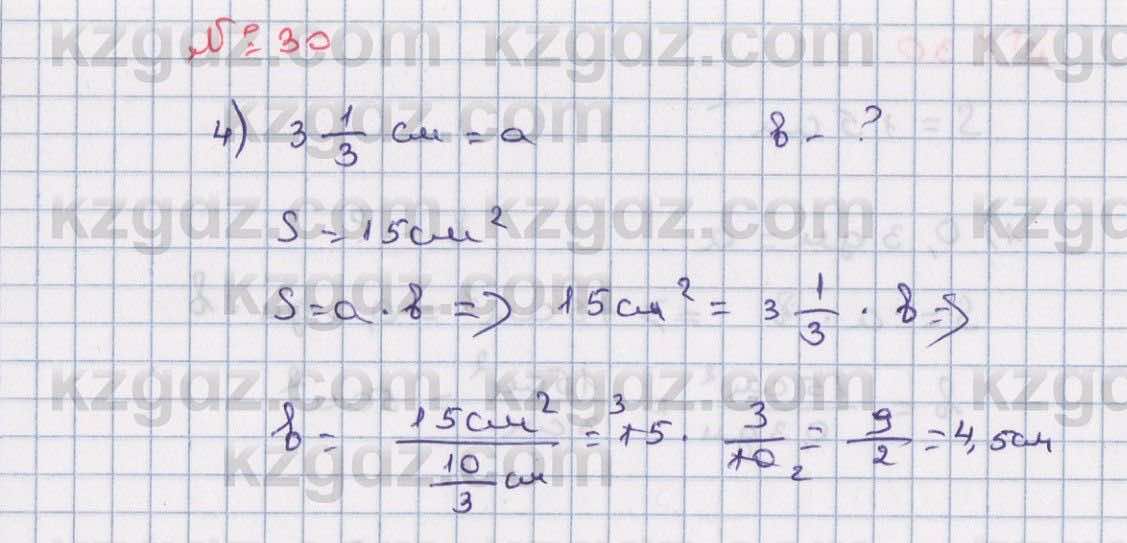 № 30
4) 3 1/3 см = a     b - ?
S = 15см²
S = a · b => 15см² = 3 1/3 · b =>
b = 15см² / (10/3 см) = 15 ³ · 3/10 ₂ = 9/2 = 4,5см
kzgdz.com